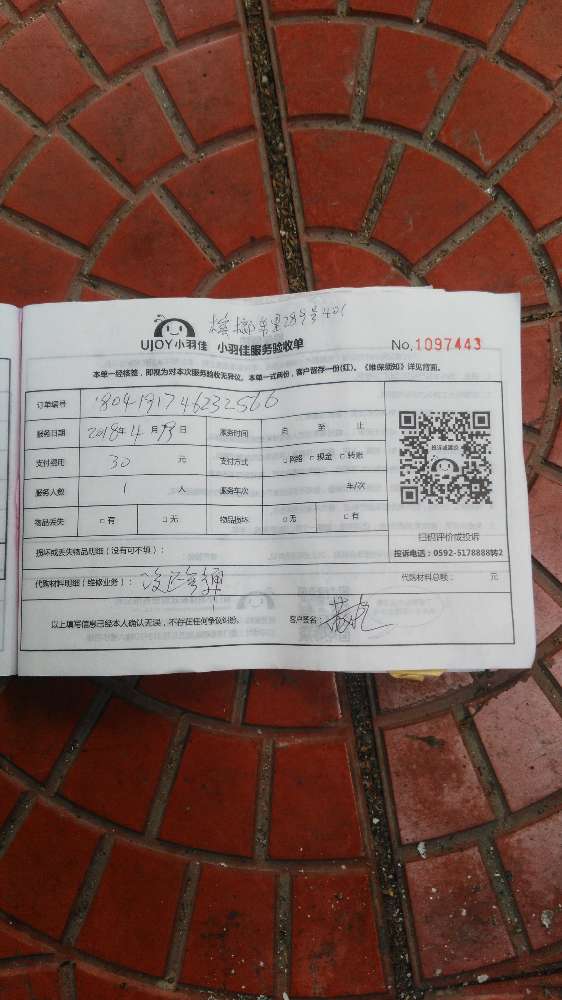 东里289号401
UJOY小羽佳 小羽佳服务验收单 No.1097443
本单一经核签，即视为对本次服务验收无异议。本单一式两份，客户留存一份(红)。《维保须知》详见背面。
订单编号 1804191746232566
服务日期 2018年4月19日 服务时间 点 至 止
支付费用 30 元 支付方式 □网络 □现金 □转账
服务人数 1 人 服务车次 车/次
物品丢失 □有 □无 物品损坏 □无 □有
投诉或建议
扫码评价或投诉
投诉电话：0592-5178888转2
损坏或丢失物品明细（没有可不填）：
代购材料明细（维修业务）： 代购材料总额： 元
以上填写信息已经本人确认无误，不存在任何争议纠纷。 客户签名：